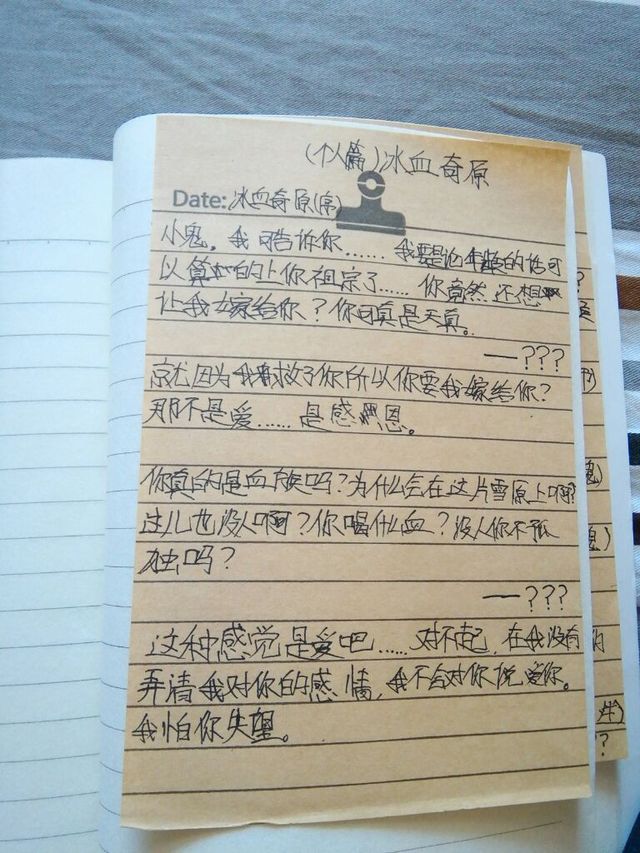 (个人篇)冰血奇原
Date:冰血奇原(序)
小鬼,我可告诉你……我要是论年龄的话可
以算的上你祖宗了……你竟然还想
让我嫁给你?你可真是天真。
——???
就因为我救了你所以你要我嫁给你?
那不是爱……是感恩。
你真的是血族吗?为什么会在这片雪原上啊?
这儿也没人啊?你喝什么血?没人你不孤
独吗?
——???
这种感觉是爱吧……对不起,在我没有
弄清我对你的感情,我不会对你说爱你。
我怕你失望。